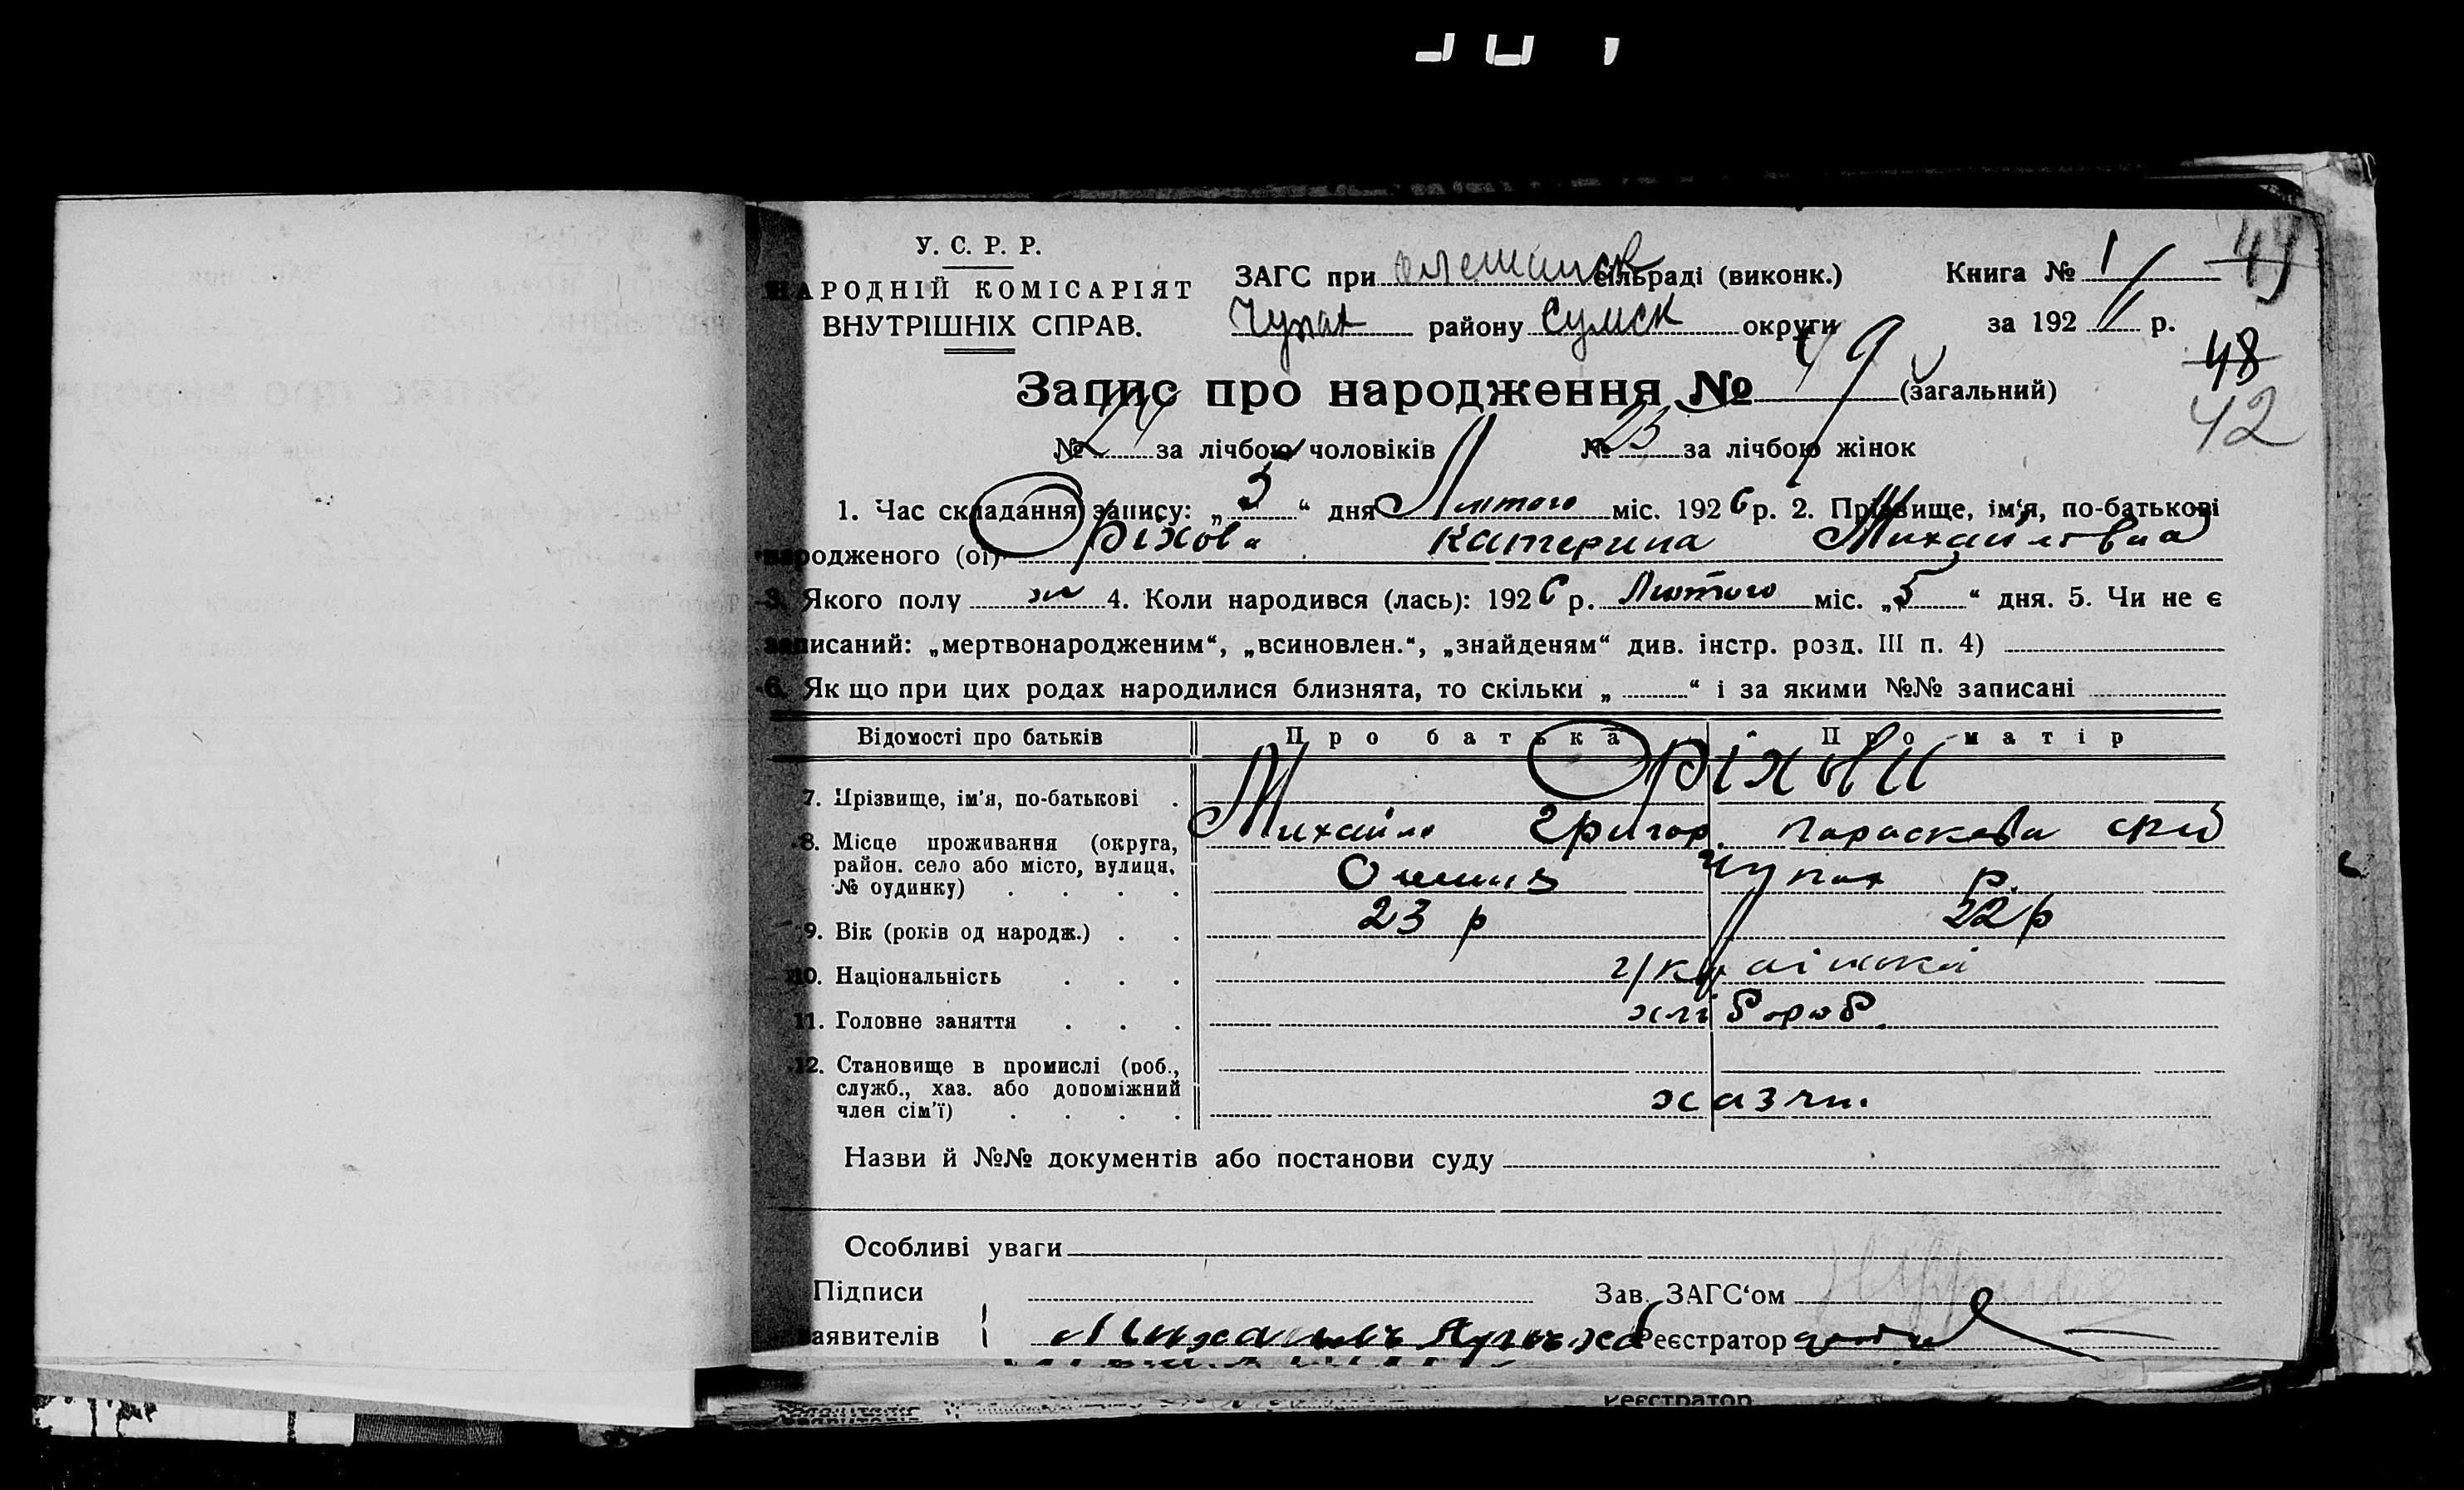 У. С. Р. Р.
НАРОДНІЙ КОМІСАРІЯТ
ВНУТРІШНІХ СПРАВ.
ЗАГС при сільраді (виконк.)
Чупах району Сумск округи
Книга № 1
за 192 р.
49
48
42
Запис про народження № 49 (загальний)
№ 24 за лічбою чоловіків № 25 за лічбою жінок
1. Час складання запису: „ 5 “ дня Лютого міс. 1926 р. 2. Прізвище, ім‘я, по-батькові
народженого (ої) Оріхова Катерина Михайловна
3. Якого полу ж 4. Коли народився (лась): 1926 р. Лютого міс. „ 5 “ дня. 5. Чи не є
записаний: „мертвонародженим“, „всиновлен.“, „знайденям“ див. інстр. розд. III п. 4)
6. Як що при цих родах народилися близнята, то скільки „ “ і за якими №№ записані
Відомості про батьків Про батька Про матір
7. Прізвище, ім'я, по-батькові . Оріхови
Михайло Григор Параскева
8. Місце проживання (округа,
район. село або місто, вулиця,
№ будинку) . . . . Чупах р.
9. Вік (років од народж.) . . 23 р 22 р
10. Національність . . . українска
11. Головне заняття . . . хлібороб.
12. Становище в промислі (роб.,
служб., хаз. або допоміжний
член сім'ї) . . . .
Назви й №№ документів або постанови суду
Особливі уваги
Підписи Зав. ЗАГС‘ом
заявителів Реєстратор
Реєстратор